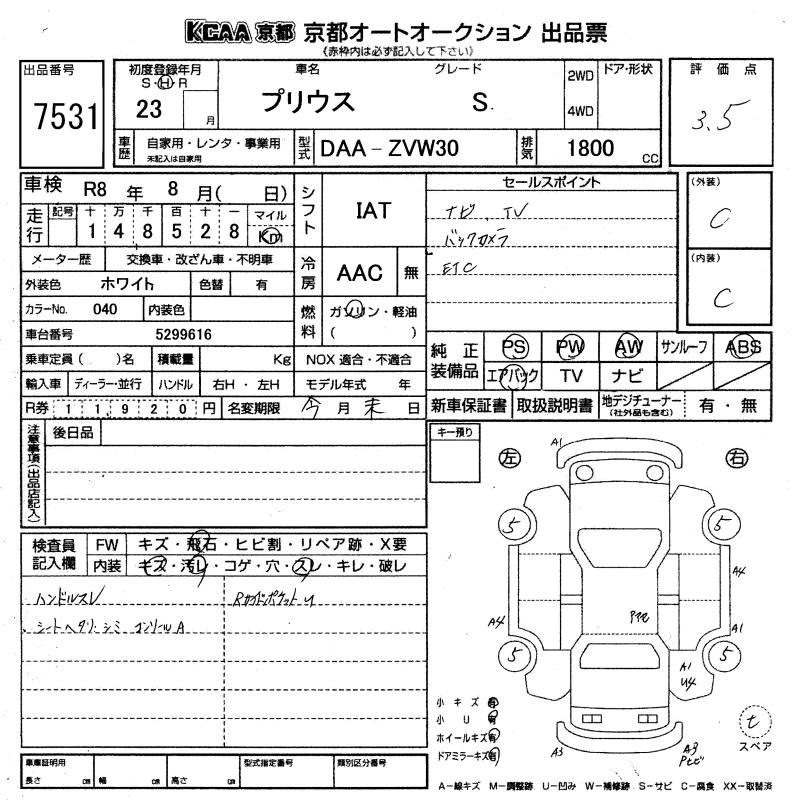 KCAA 京都 京都オートオークション 出品票
《赤枠内は必ず記入して下さい》
出品番号
7531
初度登録年月
S・H・R
23 月
車名
プリウス
グレード
S
2WD
4WD
ドア・形状
評価点
3.5
車歴
自家用・レンタ・事業用
未記入は自家用
型式
DAA-ZVW30
排気
1800 CC
車検 R8 年 8 月( 日)
走行
記号 十 万 千 百 十 一 マイル
1 4 8 5 2 8 Km
シフト
IAT
セールスポイント
ナビ、TV
バックカメラ
ETC
(外装)
C
(内装)
C
メーター歴 交換車・改ざん車・不明車
外装色 ホワイト 色替 有
冷房
AAC 無
カラーNo. 040 内装色
燃料
ガソリン・軽油
( )
車台番号 5299616
乗車定員( )名 積載量 Kg NOX 適合・不適合
輸入車 ディーラー・並行 ハンドル 右H・左H モデル年式 年
純正装備品
PS PW AW サンルーフ ABS
エアバック TV ナビ
R券 11,920 円 名変期限 今 月 末 日
新車保証書 取扱説明書 地デジチューナー 有・無
(社外品も含む)
注意事項(出品店記入)
後日品
キー預り
左 右
A1
5 5
A4
A4
A1
5 5
A1
U4
検査員記入欄
FW キズ・飛石・ヒビ割・リペア跡・X要
内装 キズ・汚レ・コゲ・穴・スレ・キレ・破レ
ハンドルスレ
シートヘタリ・シミ コンソールA
小キズ 有
小U 有
ホイールキズ 有
ドアミラーキズ 有
A3
A3
t
スペア
車庫証明用
長さ cm 幅 cm 高さ cm
型式指定番号
類別区分番号
A-線キズ M-調整跡 U-凹み W-補修跡 S-サビ C-腐食 XX-取替済